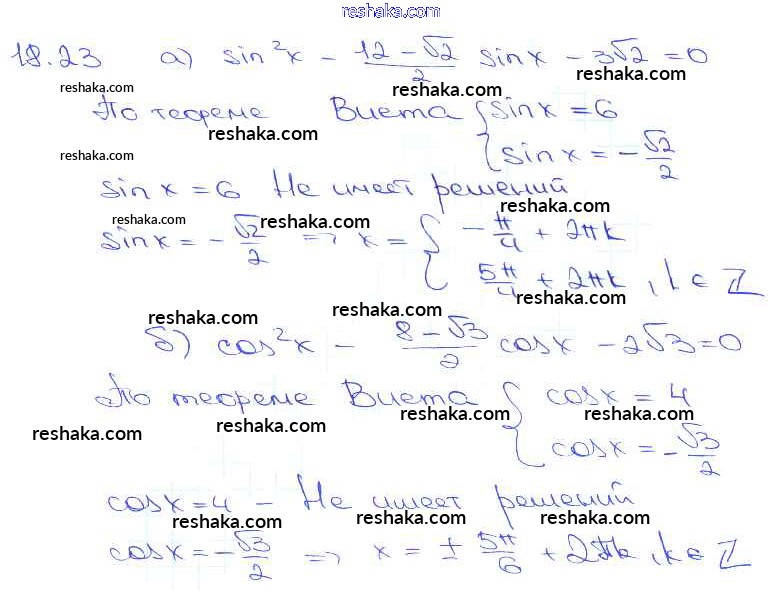 reshaka.com
18.23 а) sin²x - (12-√2)/2 sinx - 3√2 = 0
reshaka.com reshaka.com reshaka.com
По теореме Виета { sinx = 6
reshaka.com
reshaka.com { sinx = -√2/2
sinx = 6 Не имеет решений
reshaka.com reshaka.com reshaka.com
sinx = -√2/2 => x = { -π/4 + 2πk
{ 5π/4 + 2πk, k ∈ ℤ
reshaka.com reshaka.com reshaka.com
б) cos²x - (8-√3)/2 cosx - 2√3 = 0
reshaka.com reshaka.com
По теореме Виета { cosx = 4
reshaka.com reshaka.com reshaka.com reshaka.com
{ cosx = -√3/2
cosx = 4 - Не имеет решений
reshaka.com reshaka.com reshaka.com
cosx = -√3/2 => x = ± 5π/6 + 2πk, k ∈ ℤ